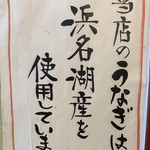 当店のうなぎは
浜名湖産を
使用していま